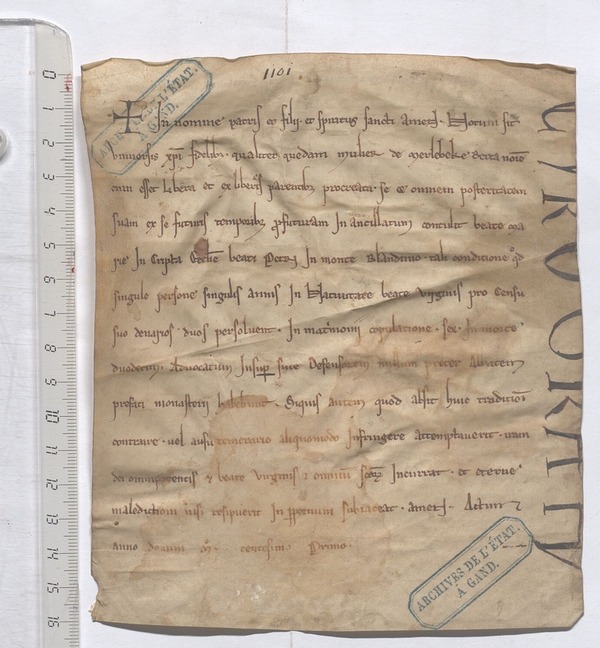 1101
In nomine patris et filii et spiritus sancti amen. Notum sit
omnibus xpi fidelibus qualiter quedam mulier de merlebeke berta noīe
cum esset libera et ex liberis parentibus procreata se et omnem posteritatem
suam ex se futuris temporibus profuturam In ancillatum contulit beate ma
rie In Cripta Ecclie beati Petri In monte Blandinio tali conditione qd
singule persone singulis annis In Nativitate beate virginis pro Censu
suo denarios duos persolverent. In matrimonii copulatione sex In morte
duodecim. Advocatum Insup sive Defensorem nullum preter Abbatem
prefati monasterii habebunt. Siquis autem quod absit huic traditioni
contraire vel ausu temerario aliquomodo Infringere attemptaverit iram
dei omnipotentis et beate virginis et omnium scōrum Incurrat et eterne
maledictioni nisi resipuerit In ppetuum subiaceat. amen. Actum
anno domini M. centesimo Primo.
CYROGRAFV
ARCHIVES DE L'ÉTAT
A GAND.
ARCHIVES DE L'ÉTAT.
A GAND.
0
1
2
3
4
5
6
7
8
9
10
11
12
13
14
15
16